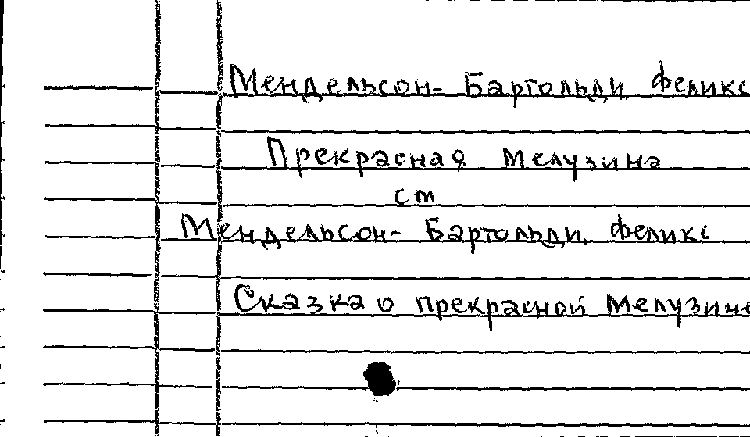 Мендельсон-Бартольди, Феликс
Прекрасная Мелузина
см
Мендельсон-Бартольди, Феликс
Сказка о прекрасной Мелузине